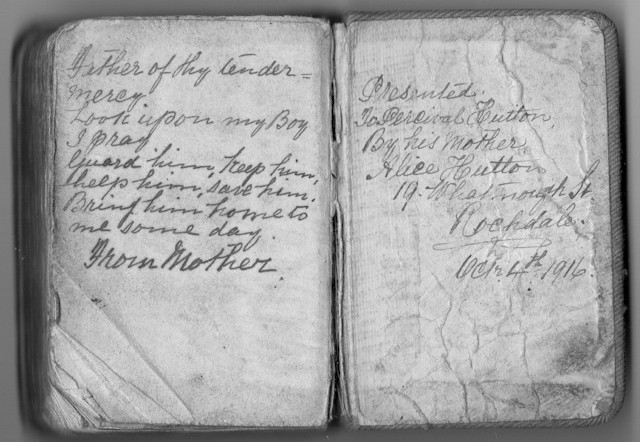 Father of thy tender=
mercy
Look upon my Boy
I pray
Guard him, keep him,
help him, save him.
Bring him home to
me some day.
From Mother.
Presented.
To Percival Hutton,
By his Mother,
Alice Hutton
19. Whatmough St.
Rochdale.
Octr. 4th 1916.